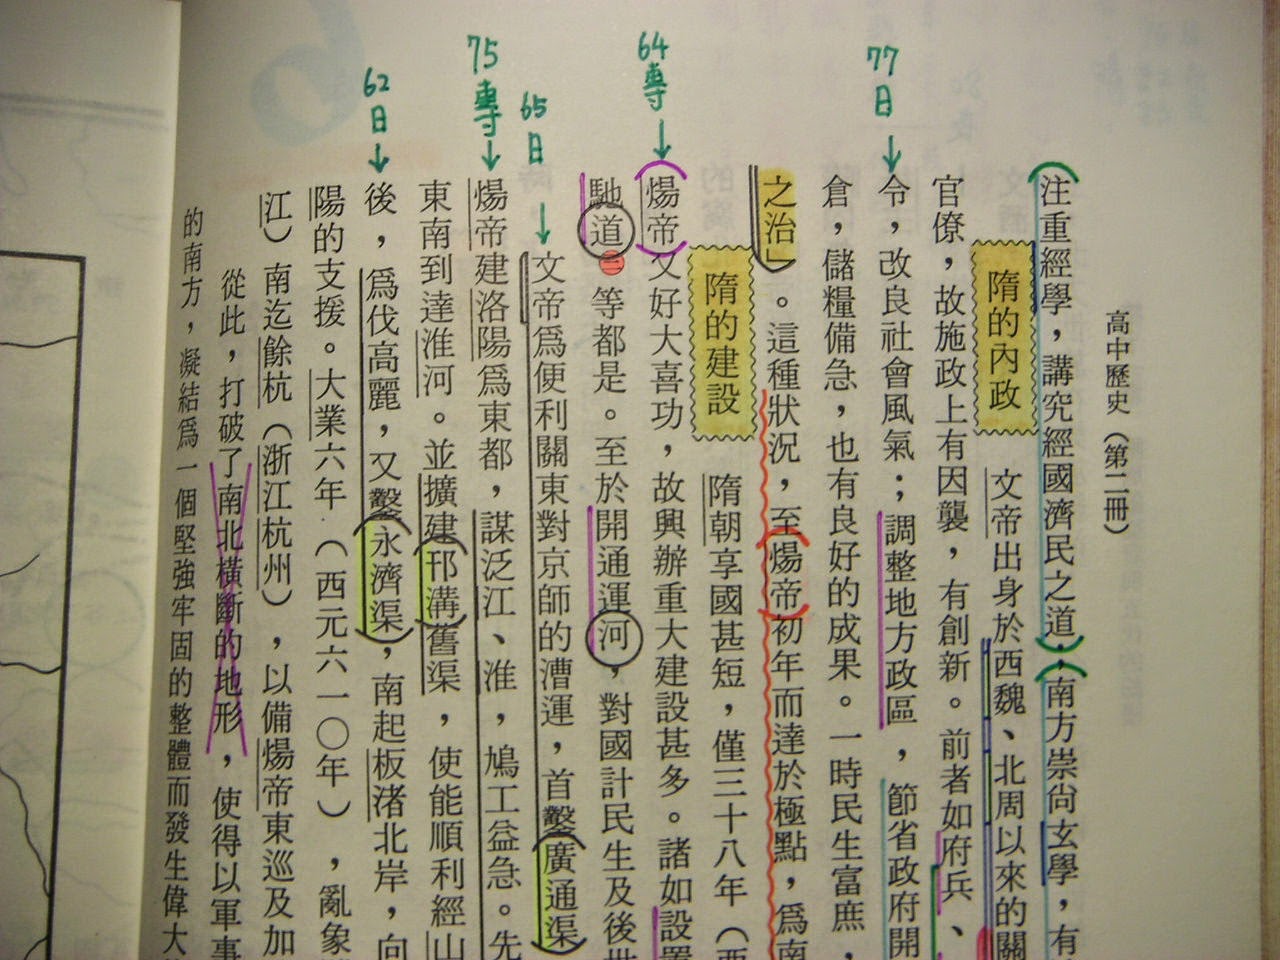 高中歷史（第二冊）
注重經學，講究經國濟民之道，南方崇尚玄學，有
隋的內政
文帝出身於西魏、北周以來的關
官僚，故施政上有因襲，有創新。前者如府兵、
77
日
令，改良社會風氣；調整地方政區，節省政府開
倉，儲糧備急，也有良好的成果。一時民生富庶，
之治」。這種狀況，至煬帝初年而達於極點，為南
隋的建設
隋朝享國甚短，僅三十八年（西
64
專
煬帝又好大喜功，故興辦重大建設甚多。諸如設置
馳道㊂等都是。至於開通運河，對國計民生及後世
65
日
文帝為便利關東對京師的漕運，首鑿廣通渠
75
專
煬帝建洛陽為東都，謀泛江、淮，鳩工益急。先
東南到達淮河。並擴建邗溝舊渠，使能順利經山
62
日
後，為伐高麗，又鑿永濟渠，南起板渚北岸，向
陽的支援。大業六年（西元六一〇年），亂象
江）南迄餘杭（浙江杭州），以備煬帝東巡及加
從此，打破了南北橫斷的地形，使得以軍事
的南方，凝結為一個堅強牢固的整體而發生偉大